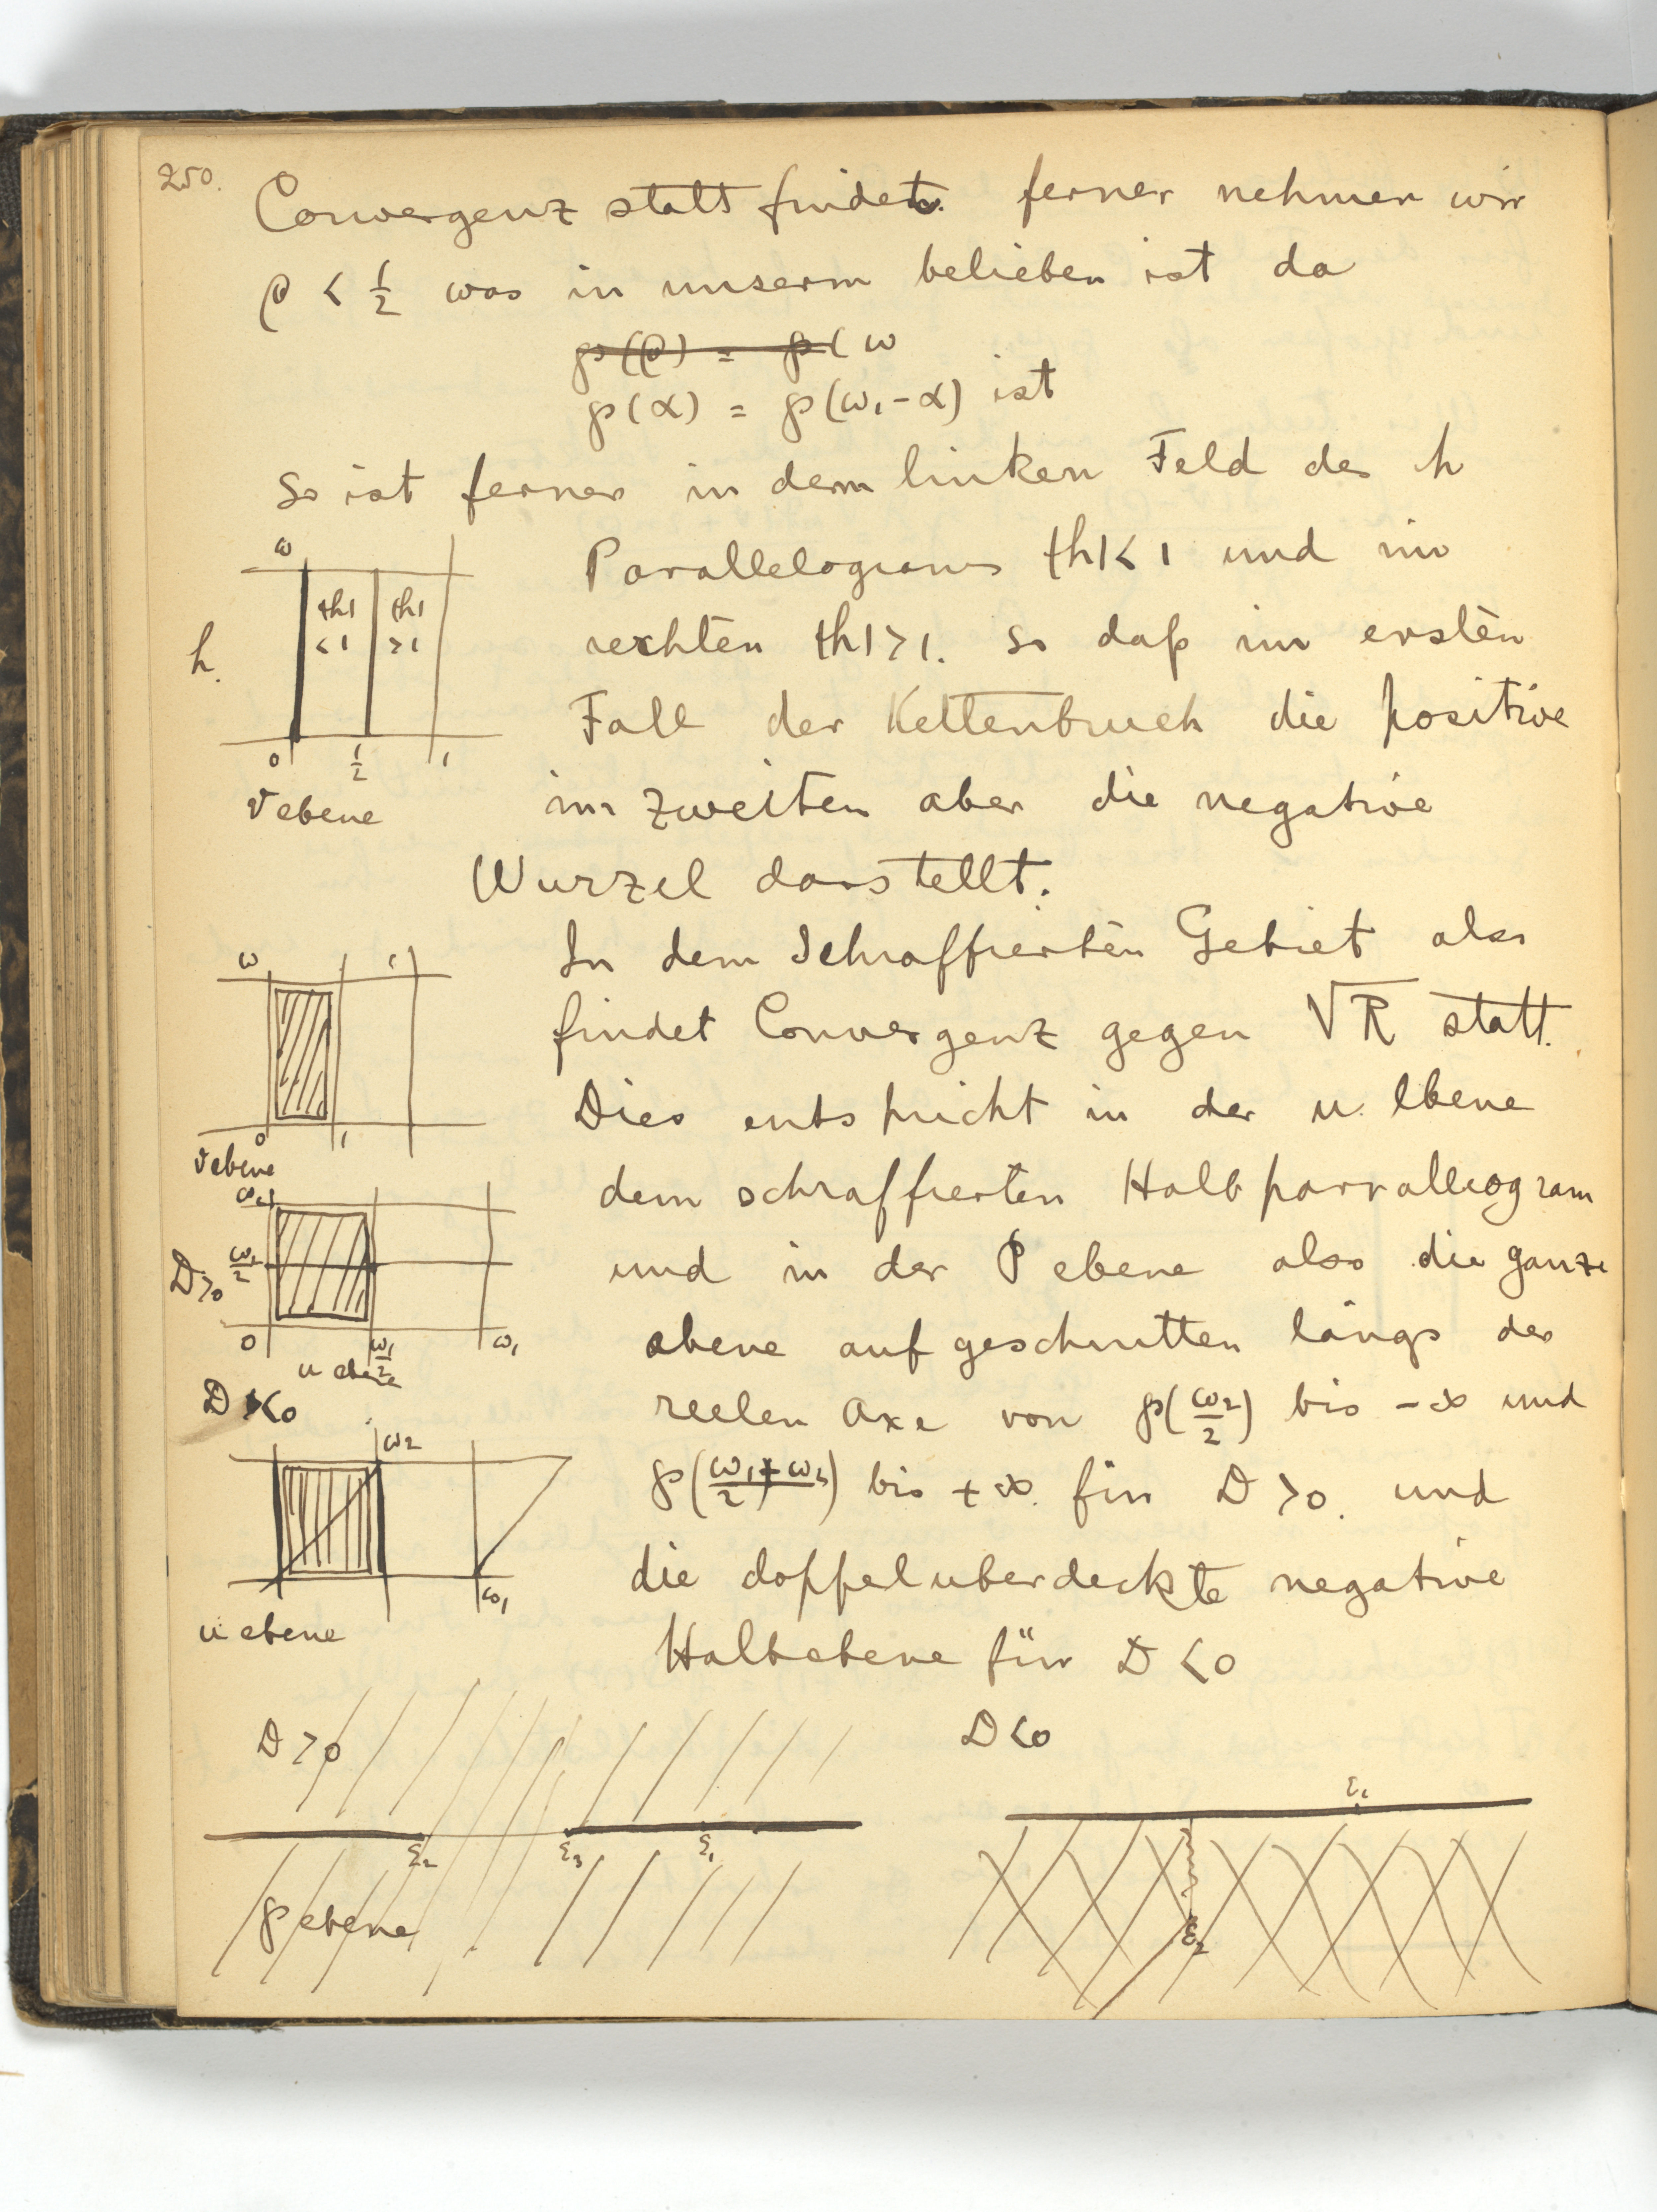 250.
Convergenz statt findet. ferner nehmen wir
ρ < 1/2 was in unserm belieben ist da
℘(ρ) = ℘(ω
℘(α) = ℘(ω₁-α) ist
so ist ferner in dem linken Feld des h
Parallelogrames |h|< 1 und im
rechten |h|>1. so daß im ersten
Fall der Kettenbruch die positive
im zweiten aber die negative
Wurzel darstellt.
ω
|h| <1
|h| >1
h.
0 1/2 1
v ebene
In dem Schraffierten Gebiet also
findet Convergenz gegen √R statt.
Dies entspricht in der u. Ebene
dem schraffierten Halbparralleogram
und in der ℘ ebene also die ganze
ebene aufgeschnitten längs der
reelen Axe von ℘(ω₂/2) bis -∞ und
℘((ω₁+ω₂)/2) bis +∞. für D >0. und
die doppeluberdeckte negative
Halbebene für D <0
ω 1
0 1
v ebene
ω₂
ω₂/2
D>0
0 ω₁/2 ω₁
u ebene
D <0
ω₂
ω₁
u ebene
D >0
D <0
ε₂ ε₃ ε₁
℘ ebene
ε₁
ε₂